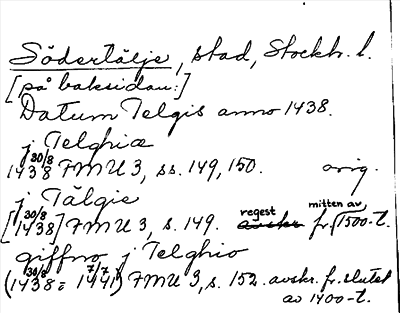 Södertälje, stad, Stockh. l.
[på baksidan:]
Datum Telgis anno 1438.
j Telghiæ
1438 30/8 FMU 3, ss. 149, 150. orig.
j Tälgie
[1438 30/8] FMU 3, s. 149. regest avskr. fr. mitten av 1500-t.
giffno j Telghio
(1438 30/8 = 1441 7/7) FMU 3, s. 152. avskr. fr. slutet
av 1400-t.